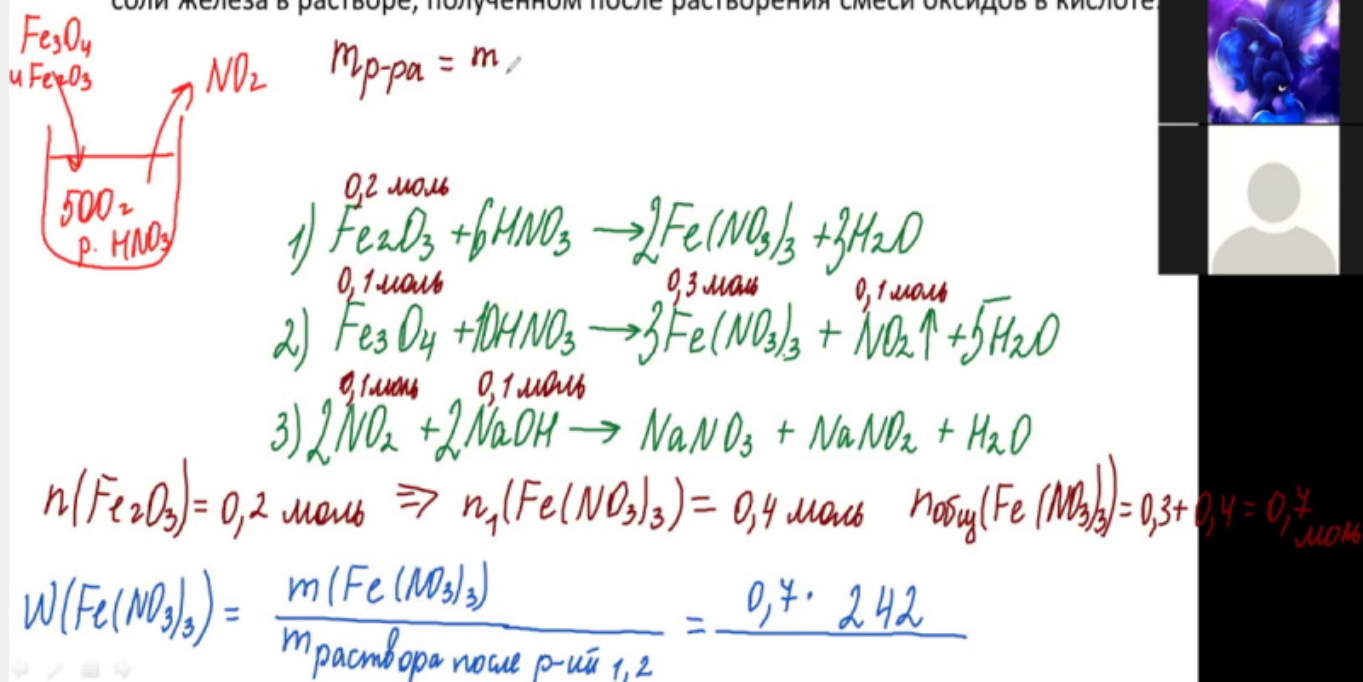 соли железа в растворе, полученном после растворения смеси оксидов в кислоте.
Fe₃O₄
и Fe₂O₃
NO₂
500 г
р. HNO₃
m р-ра = m
0,2 моль
1) Fe₂O₃ + 6HNO₃ → 2Fe(NO₃)₃ + 3H₂O
0,1 моль 0,3 моль 0,1 моль
2) Fe₃O₄ + 10HNO₃ → 3Fe(NO₃)₃ + NO₂↑ + 5H₂O
0,1 моль 0,1 моль
3) 2NO₂ + 2NaOH → NaNO₃ + NaNO₂ + H₂O
n(Fe₂O₃) = 0,2 моль ⇒ n₁(Fe(NO₃)₃) = 0,4 моль nобщ(Fe(NO₃)₃) = 0,3 + 0,4 = 0,7 моль
W(Fe(NO₃)₃) = m(Fe(NO₃)₃) / m раствора после р-ий 1,2 = 0,7 · 242